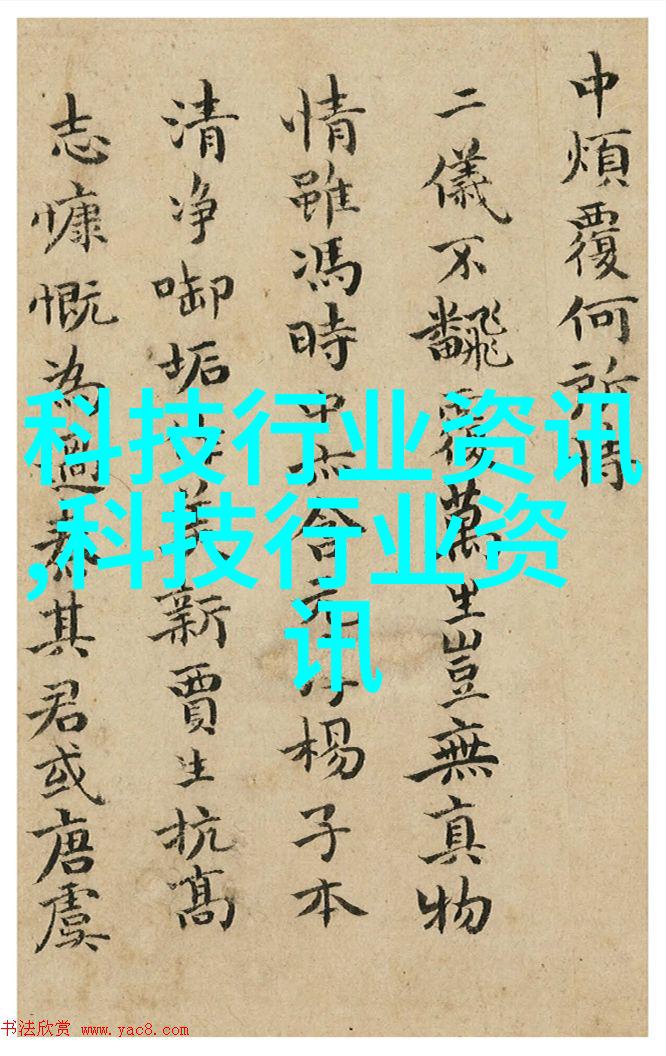 中煩覆何所情
二儀不飜覆萬生豈無真物
情雖馮時中
含元
楊子本
清净啣垢
美新賈生抗高
志慷慨為過
其君或唐虞
科技行业资讯
,科技行业资
讯
书法欣赏 www.yac8.com